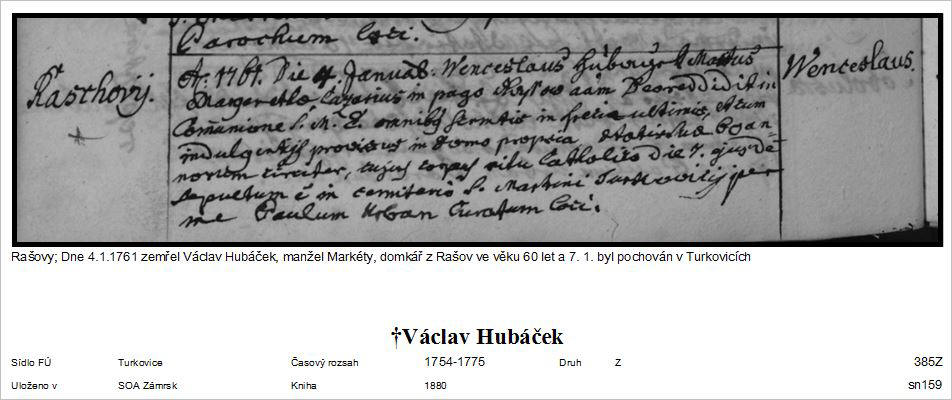 Parochum loci.
Raschovij.
A: 1761. Die 4. Januar. Wenceslaus Maritus
Margarethae in pago aam Deo reddidit in
Com̄unione S. M. E. omnibq in ultimis,
indulgentijs provisus in domo propria aetatis suae 60 an-
norum circiter, cujus corpus ritu Catholico die 7. ejusdē
sepultum ē in cemiterio S. Martini Turkovicijs per
me Paulum Urban Curatum loci.
Wenceslaus.
Rašovy; Dne 4.1.1761 zemřel Václav Hubáček, manžel Markéty, domkář z Rašov ve věku 60 let a 7. 1. byl pochován v Turkovicích
†Václav Hubáček
Sídlo FÚ Turkovice Časový rozsah 1754-1775 Druh Z 385Z
Uloženo v SOA Zámrsk Kniha 1880 sn159